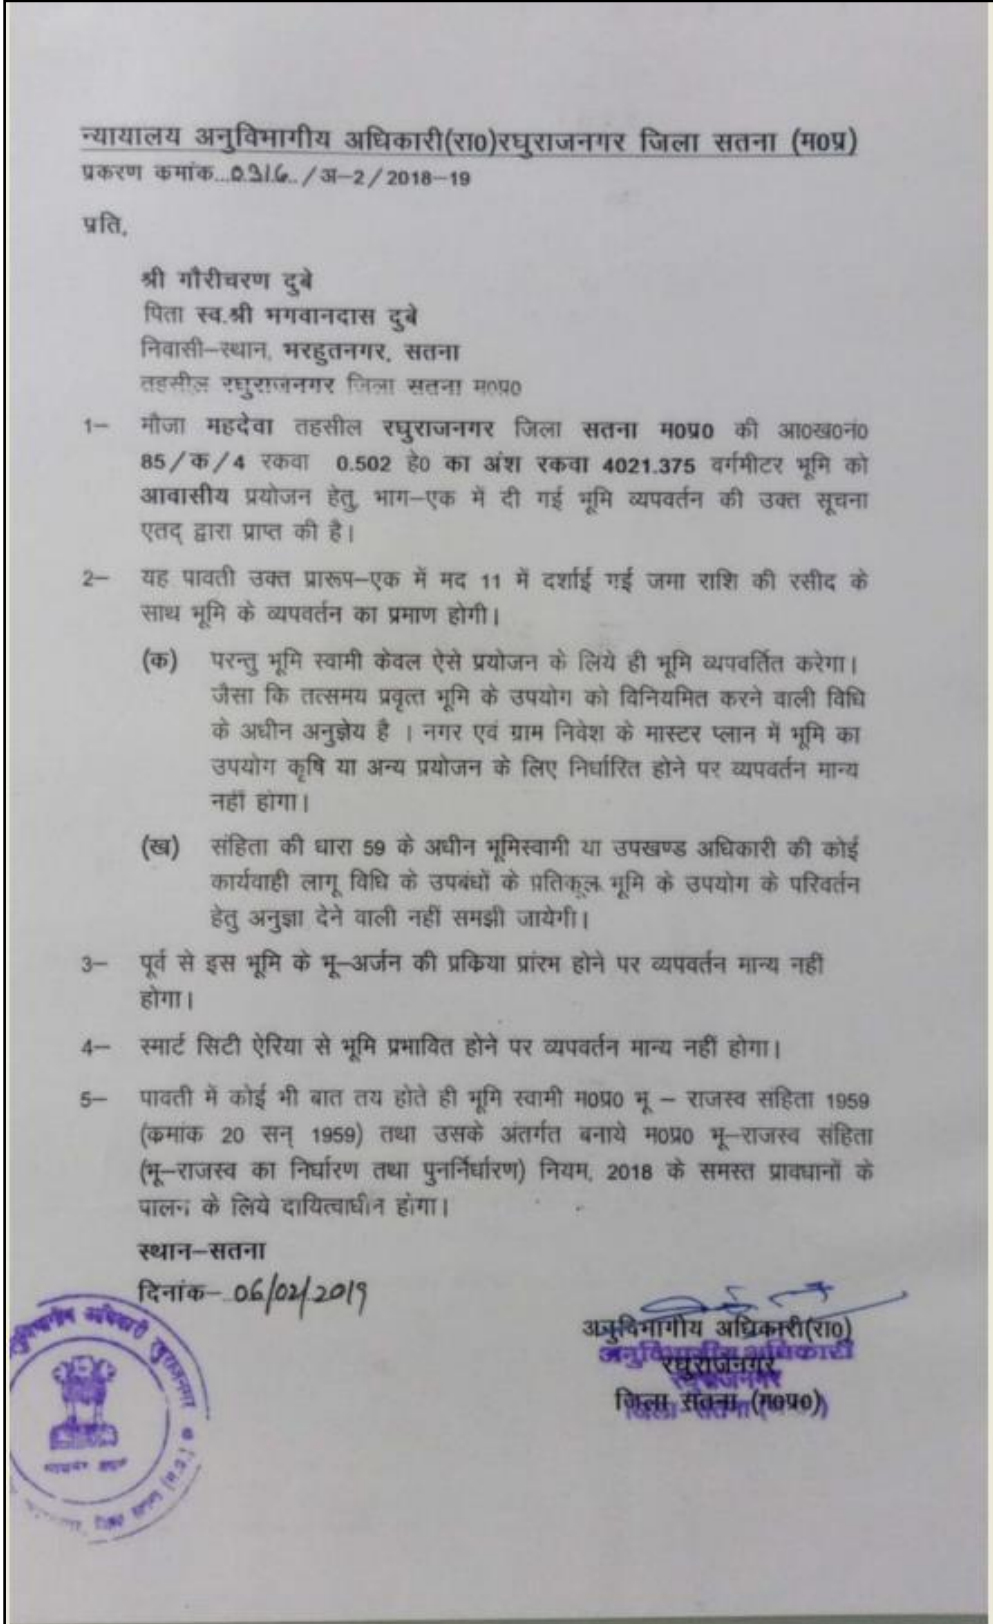 न्यायालय अनुविभागीय अधिकारी(रा0)रघुराजनगर जिला सतना (म0प्र)
प्रकरण कमांक...0316../अ–2/2018–19
प्रति,
श्री गौरीचरण दुबे
पिता स्व.श्री भगवानदास दुबे
निवासी–स्थान, भरहुतनगर, सतना
तहसील रघुराजनगर जिला सतना म0प्र0
1– मौजा महदेवा तहसील रघुराजनगर जिला सतना म0प्र0 की आ0ख0नं0
85/क/4 रकवा 0.502 हे0 का अंश रकवा 4021.375 वर्गमीटर भूमि को
आवासीय प्रयोजन हेतु, भाग–एक में दी गई भूमि व्यपवर्तन की उक्त सूचना
एतद् द्वारा प्राप्त की है।
2– यह पावती उक्त प्रारूप–एक में मद 11 में दर्शाई गई जमा राशि की रसीद के
साथ भूमि के व्यपवर्तन का प्रमाण होगी।
(क) परन्तु भूमि स्वामी केवल ऐसे प्रयोजन के लिये ही भूमि व्यपवर्तित करेगा।
जैसा कि तत्समय प्रवृत्त भूमि के उपयोग को विनियमित करने वाली विधि
के अधीन अनुज्ञेय है । नगर एवं ग्राम निवेश के मास्टर प्लान में भूमि का
उपयोग कृषि या अन्य प्रयोजन के लिए निर्धारित होने पर व्यपवर्तन मान्य
नहीं होगा।
(ख) संहिता की धारा 59 के अधीन भूमिस्वामी या उपखण्ड अधिकारी की कोई
कार्यवाही लागू विधि के उपबंधों के प्रतिकूल भूमि के उपयोग के परिवर्तन
हेतु अनुज्ञा देने वाली नहीं समझी जायेगी।
3– पूर्व से इस भूमि के भू–अर्जन की प्रकिया प्रांरभ होने पर व्यपवर्तन मान्य नही
होगा।
4– स्मार्ट सिटी ऐरिया से भूमि प्रभावित होने पर व्यपवर्तन मान्य नहीं होगा।
5– पावती में कोई भी बात तय होते ही भूमि स्वामी म0प्र0 भू – राजस्व संहिता 1959
(कमांक 20 सन् 1959) तथा उसके अंतर्गत बनाये म0प्र0 भू–राजस्व संहिता
(भू–राजस्व का निर्धारण तथा पुनर्निर्धारण) नियम, 2018 के समस्त प्रावधानों के
पालन के लिये दायित्वाधीन होगा।
स्थान–सतना
दिनांक– 06/02/2019
अनुविभागीय अधिकारी(रा0)
अनुविभागीय अधिकारी
रघुराजनगर
रघुराजनगर
जिला सतना (म0प्र0)
अधिकारी रघुराजनगर